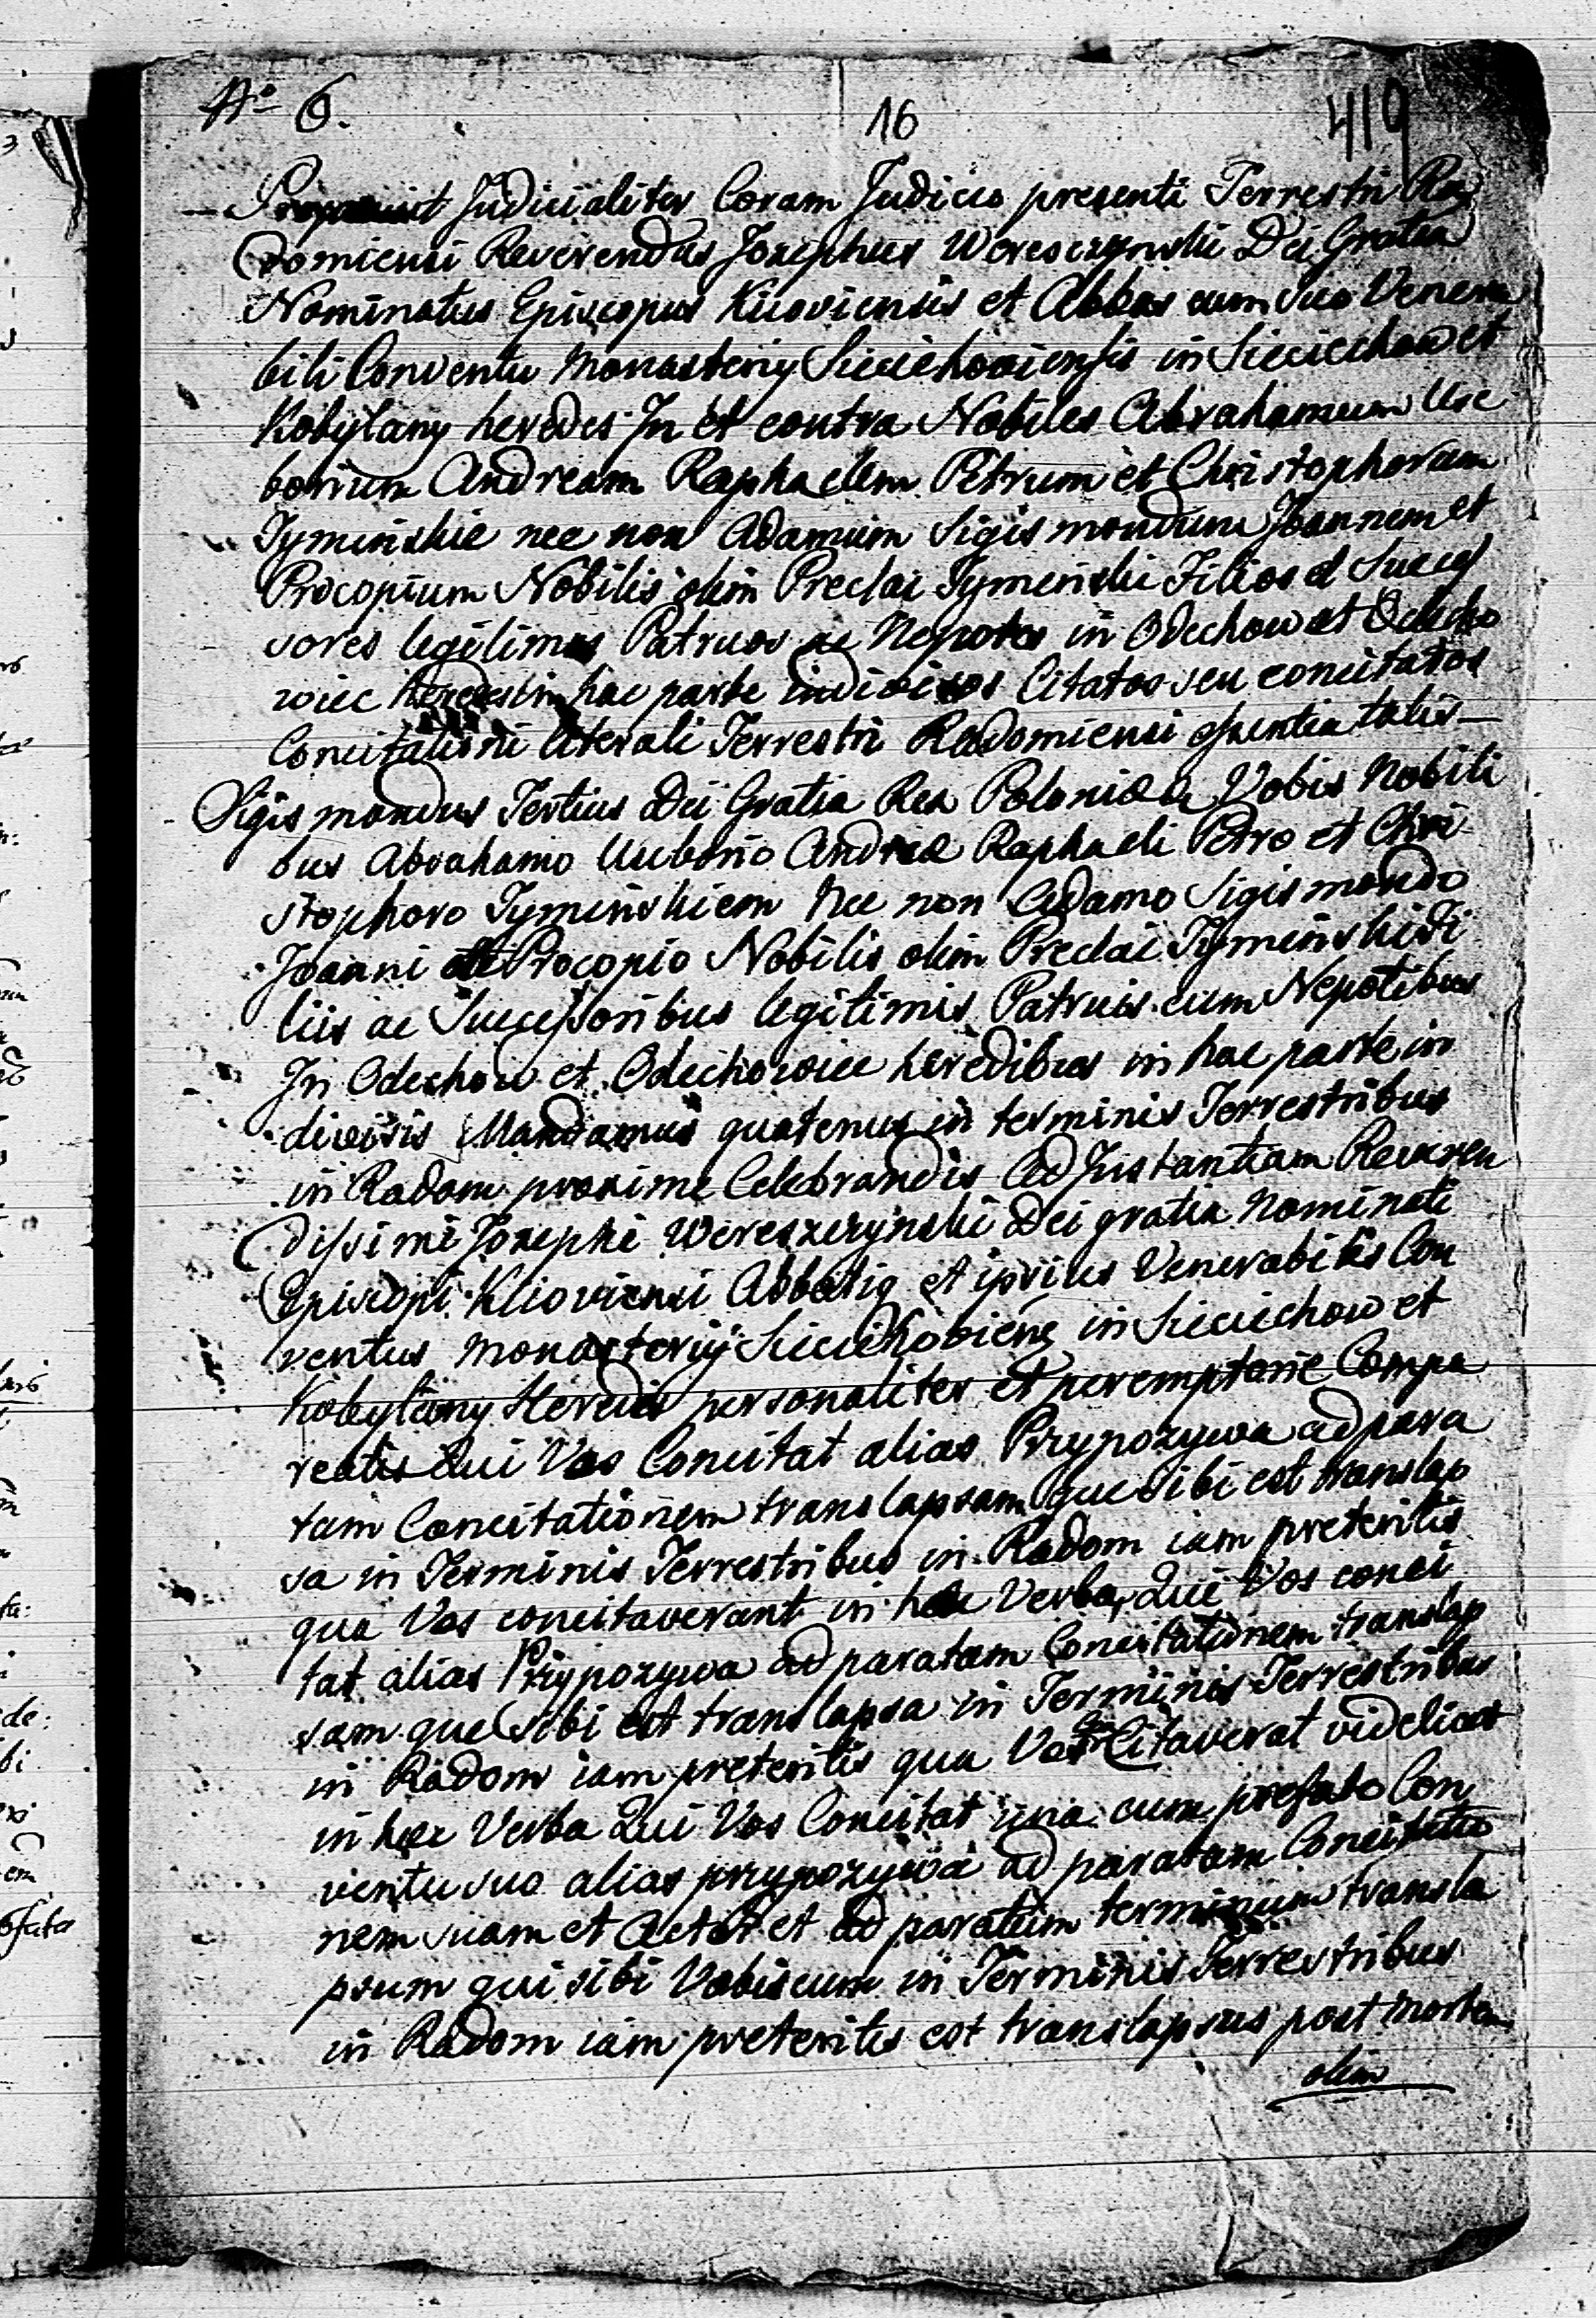 No 6.
16
419
Proposuit Judicialiter Coram Judicio presenti Terrestri Ra
domiensi Reverendus Josephus Wereszczynski Dei Gratia
Nominatus Episcopus Kiioviensis et Abbas cum suo Venera
bili Conventu Monasterij Sieciehoviensis in Sieciechow et
Kobylany heredes In et contra Nobiles Abrahamum Use
borium Andream Raphaelem Petrum et Christophorum
Tyminskie nec non Adamum Sigismondum Joannem et
Procopium Nobilis olim Preclai Tyminski Filios et Succes
sores legitimos Patruos ac Nepotes in Odechow et Odecho
wiec heredes in hac parte indivisos Citatos seu concitatos
Concitationi literali Terrestri Radomiensi essentia talis—
Sigismondus Tertius Dei Gratia Rex Poloniæ Vobis Nobili
bus Abrahamo Uuborio Andreæ Raphaeli Petro et Chri
stophoro Tyminskiem Nec non Adamo Sigismondo
Joanni et Procopio Nobilis olim Preclai Tyminski Fi
liis ac Successoribus legitimis Patruis cum Nepotibus
In Odechow et Odechowiec heredibus in hac parte in
divisis Mandamus quatenus in terminis Terrestribus
in Radom proxime Celebrandis Ad Instantiam Reveren
dissimi Josephi Wereszczynski Dei gratia Nominati
Episcopi Kiioviensi Abbatis et ipsius Venerabilis Con
ventus Monasterij Sieciehoviens in Sieciechow et
Kobylany Heredis personaliter et peremptorie Compa
reatis Qui Vos Concitat alias Przypozywa ad para
tam Concitationem translapsam que sibi est translap
sa in Terminis Terrestribus in Radom iam preteritis
qua Vos concitaverant in hæc Verba, Qui Vos conci
tat alias Przypozywa ad paratam Concitationem translap
sam que sibi est translapsa in Terminis Terrestribus
in Radom iam preteritis qua Vos Con Citaverat videlicet
in hæc Verba Qui Vos Concitat una cum prefato Con
ventu suo alias przypozywa ad paratam Concitatio
nem suam et Actor et ad paratum terminum transla
psum qui sibi Vobiscum in Terminis Terrestribus
in Radom iam preteritis est translapsus post mortem
olim